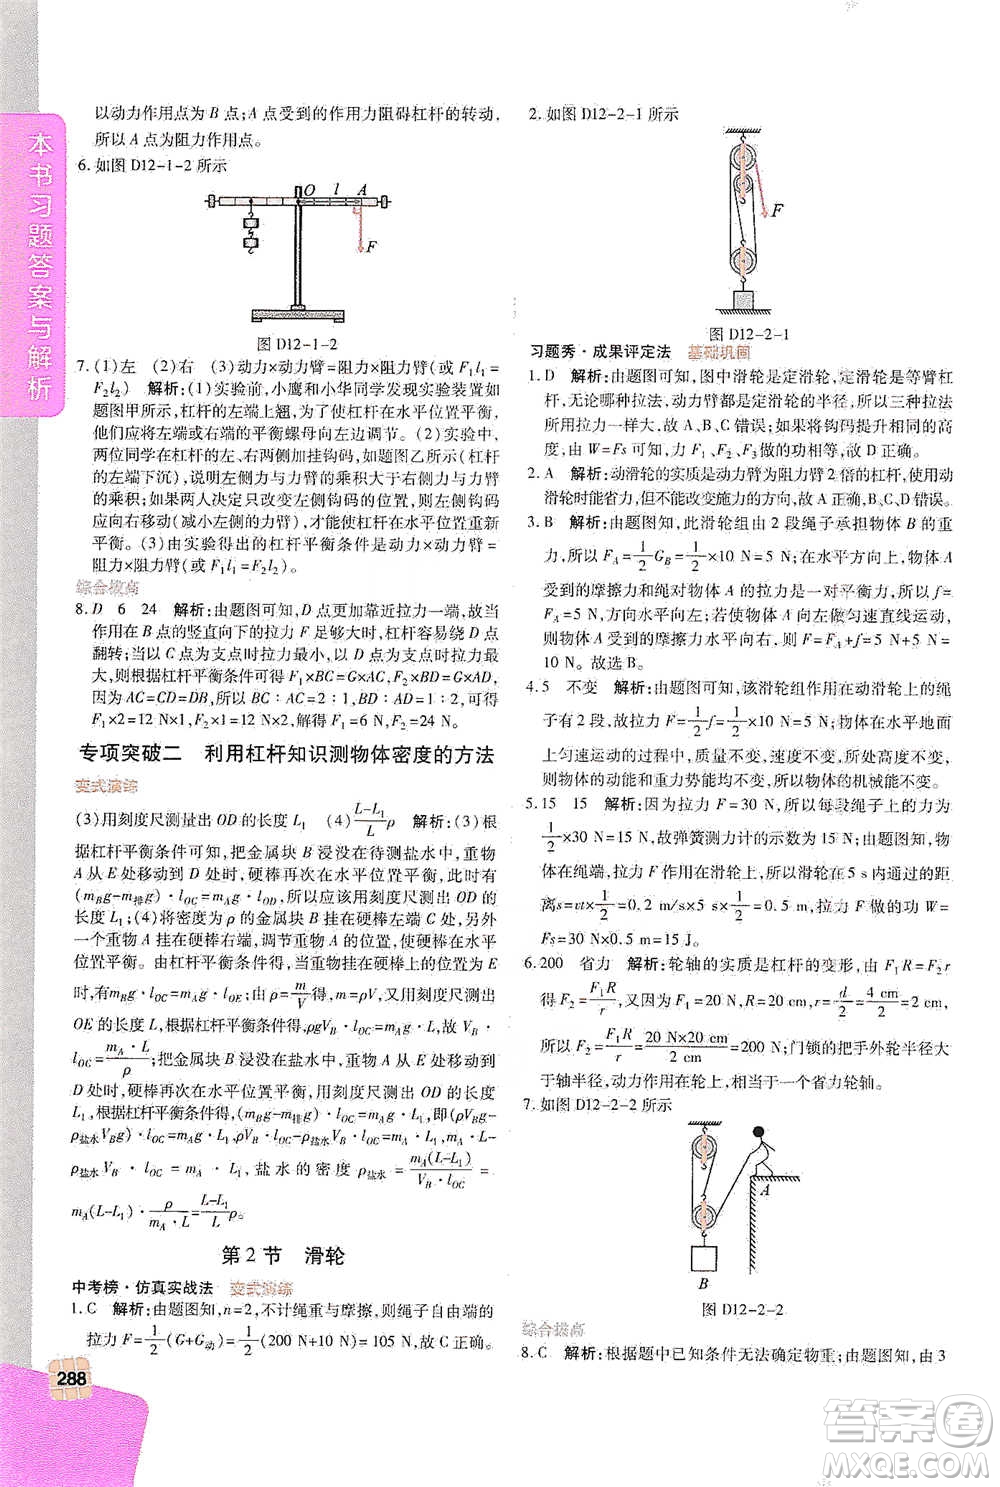 本书习题答案与解析
以动力作用点为 B 点;A 点受到的作用力阻碍杠杆的转动,
所以 A 点为阻力作用点。
6.如图 D12-1-2 所示
O l A
F
图 D12-1-2
7.(1)左 (2)右 (3)动力×动力臂=阻力×阻力臂(或 F₁l₁=
F₂l₂) 解析:(1)实验前,小鹰和小华同学发现实验装置如
题图甲所示,杠杆的左端上翘,为使杠杆在水平位置平衡,
他们应将左端或右端的平衡螺母向左调节。(2)实验中,
两位同学在杠杆的左、右两端加挂钩码,如题图乙所示(杠杆
的左端下沉),说明左侧力与力臂的乘积大于右侧力与力臂
的乘积;如果两人决定只改变左侧钩码的位置,则左侧钩码
应向右移动(减小左侧的力臂),才能使杠杆在水平位置重新
平衡。(3)由实验得出的杠杆平衡条件是动力×动力臂=
阻力×阻力臂(F₁l₁=F₂l₂)。
综合拔高
8.D 6 24 解析:由题图可知,D 点更加靠近拉力一端,故当
作用在 B 的竖直向下的拉力 F 足够大时,杠杆容易绕 D 点
翻转;当以 C 为支点时拉力最小,而以 D 点为支点时拉力最
大,则根据杠杆平衡条件可得 F₁×BC=G×AC,F₂×BD=G×AD,
因为 AC=CD=DB,所以 BC∶AC=2∶1,BD∶AD=1∶2,即
F₁×2=12 N×1,F₂×1=12 N×2,解得 F₁=6 N,F₂=24 N。
专项突破二 利用杠杆知识测物体密度的方法
变式演练
(3)用刻度尺测量出 OD 的长度 L₁ (4)(L-L₁)/L ρ 解析:(3)根
据杠杆平衡条件可知,把金属块 B 浸没在待测盐水中,重物
A 从 E 处移动到 D 处时,硬棒再次在水平位置平衡,此时有
(m_B g-m排 g)·l_OC=m_A g·l_OD,所以应该用刻度尺测出 OD 的
长度 L₁;(4)将密度为 ρ 的金属块 B 挂在硬棒左端 C 处,另外
一个重物 A 挂在硬棒右端,调节重物 A 的位置,使硬棒在水平
位置平衡。由杠杆平衡条件,硬棒上重物 A 的悬挂点位置 E
时,有 m_B g·l_OC=m_A g·l_OE;由 ρ=m/V得,m=ρV,用刻度尺测出
OE 的长度 L,根据杠杆平衡条件得,ρgV_B·l_OC=m_A g·L,V_B·
l_OC=(m_A·L)/ρ;把金属块 B 浸没在盐水中,把重物 A 从 E 处移动到
D 处时,硬棒再次在水平位置平衡,用刻度尺测出 OD 的长度
L₁,根据杠杆平衡条件得,(m_B g-m排 g)·l_OC=m_A g·L₁,即(ρV_B g-
ρ盐水 V_B g)·l_OC=m_A g·L₁,(ρV_B-ρ盐水 V_B)·l_OC=m_A·L₁,m_A·L-
ρ盐水 V_B·l_OC=m_A·L₁,盐水的密度 ρ盐水=m_A(L-L₁)/(V_B·l_OC)=
m_A(L-L₁)·ρ/(m_A·L)=(L-L₁)/L ρ。
第 2 节 滑轮
中考榜·仿真实战法 变式演练
1.C 解析:由题图知,n=2,不计绳重与摩擦,则绳子自由端的
拉力 F=1/2(G+G动)=1/2(200 N+10 N)=105 N,故 C 正确。
288
2.如图 D12-2-1 所示
F
图 D12-2-1
习题秀·成果评定法 基础巩固
1.D 解析:由题图可知,图中滑轮是定滑轮,定滑轮是等臂杠
杆,无论哪种拉法,动力臂都是滑轮的半径,所以这三种拉法
所用拉力一样大,故 A、B、C 错误;如果将钩码提升相同的高
度,根据 W=Fs 可知,拉力 F₁、F₂、F₃ 做的功相等,故 D 正确。
2.A 解析:动滑轮的实质是动力臂为阻力臂 2 倍的杠杆,使用动
滑轮时能省力,但不能改变施力的方向,故 A 正确,B、C、D 错误。
3.B 解析:由题图知,此滑轮组由 2 段绳子承担物体 B 的重
力,所以 F_A=1/2G_B=1/2×10 N=5 N;在水平方向上,物体 A
受到的摩擦力和滑轮组对物体 A 的拉力是一对平衡力,则 f=
F_A=5 N,方向水平向左;若使物体 A 向左做匀速直线运动,
则物体 A 受到的摩擦力水平向右,所以 F=F_A+f=5 N+5 N
=10 N。故选 B。
4.5 不变 解析:由题图可知,该滑轮组作用在动滑轮上的绳
子有 2 段,故拉力 F=1/2f=1/2×10 N=5 N;在水平地面
上匀速运动的过程中,质量不变,速度不变,所处高度不变,
则物体的动能和重力势能均不变,所以物体的机械能不变。
5.15 15 解析:因为拉力 F=30 N,所以每段绳子上的力为
1/2×30 N=15 N,故弹簧测力计的示数为 15 N;由题图知,拉力
作用在绳端,拉着滑轮向右运动,所以滑轮在 5 s 内通过的距
离s=vt×1/2=0.2 m/s×5 s×1/2=0.5 m,拉力 F 做的功 W=
Fs=30 N×0.5 m=15 J。
6.200 省力 解析:轮轴的实质是杠杆的变形,由 F₁R=F₂r
得 F₂=F₁R/r,从题图可以知道,因为 F₁=20 N,r=d/2=4 cm/2=2 cm,
所以 F₂=F₁R/r=(20 N×20 cm)/2 cm=200 N;门锁的把手外轮半径大
于轴半径,动力作用在轮上,是一个省力轮轴。
7.如图 D12-2-2 所示
A
B
图 D12-2-2
综合拔高
8.C 解析:根据题中已知条件无法确定物重;由题图知,由 3
答案卷
MXQE.COM